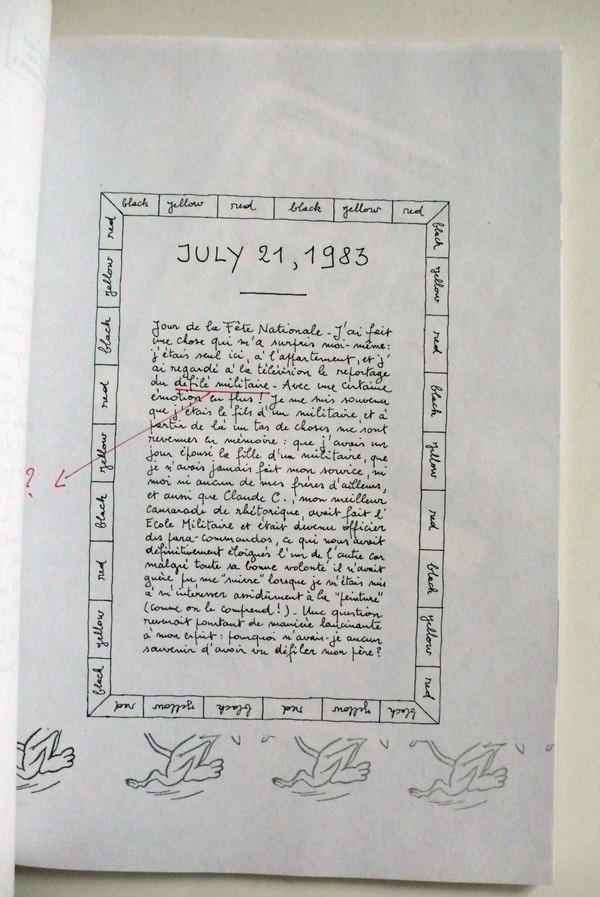 black yellow red black yellow red
JULY 21, 1983
Jour de la Fête Nationale - J'ai fait
une chose qui m'a surpris moi-même:
j'étais seul ici, à l'appartement, et j'
ai regardé à la télévision le reportage
du défilé militaire - Avec une certaine
émotion en plus ! Je me suis souvenu
que j'étais le fils d'un militaire et à
partir de là un tas de choses me sont
revenues en mémoire : que j'avais un
jour épousé la fille d'un militaire, que
je n'avais jamais fait mon service, ni
moi ni aucun de mes frères d'ailleurs,
et aussi que Claude C., mon meilleur
camarade de rhétorique, avait fait l'
Ecole Militaire et était devenu officier
des para-commandos, ce qui nous avait
définitivement éloignés l'un de l'autre car
malgré toute sa bonne volonté il n'avait
guère pu me "suivre" lorsque je m'étais mis
à m'intéresser assidûment à la "peinture"
(comme on le comprend !) - Une question
revenait pourtant de manière lancinante
à mon esprit : pourquoi n'avais-je aucun
souvenir d'avoir vu défiler mon père ?
?
black
yellow
red
black
yellow
red
black
yellow
red
black yellow red black yellow red
black
yellow
red
black
yellow
red
black
yellow
red